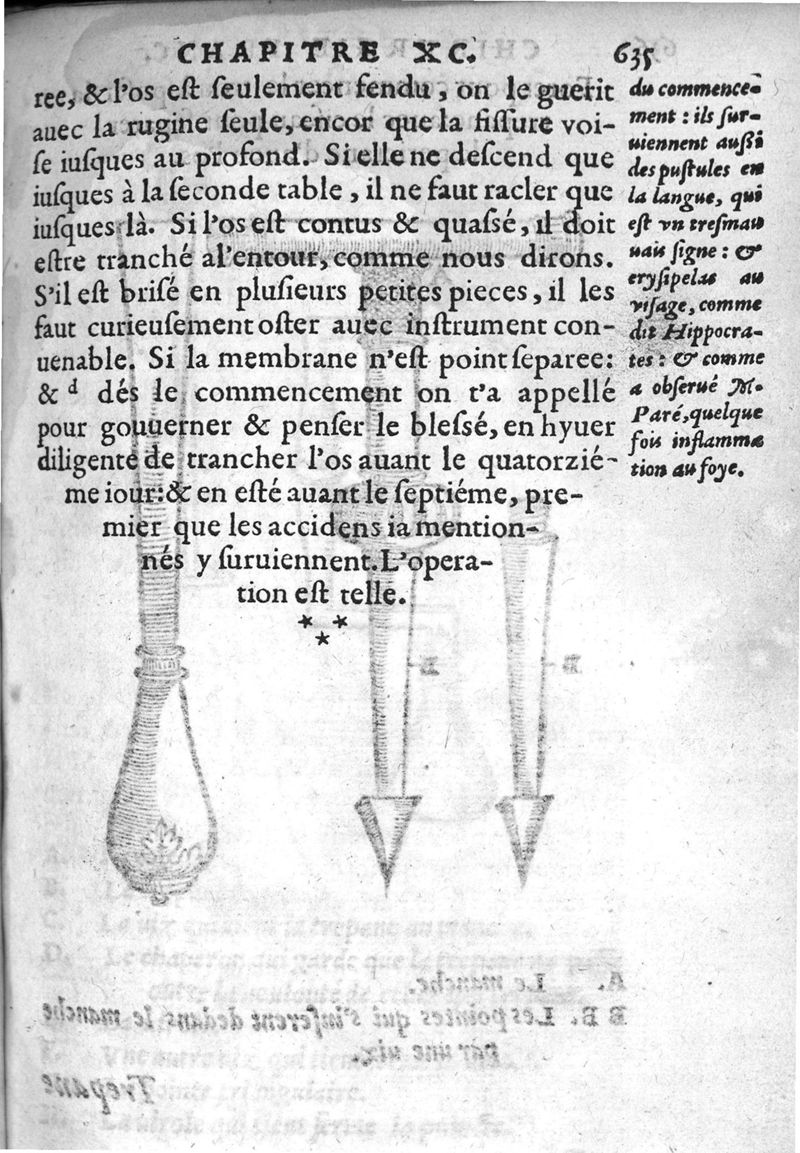 CHAPITRE XC. 635
ree, & l'os est seulement fendu, on le guerit
auec la rugine seule, encor que la fissure voi-
se iusques au profond. Si elle ne descend que
iusques à la seconde table, il ne faut racler que
iusques là. Si l'os est contus & quassé, il doit
estre tranché al'entour, comme nous dirons.
S'il est brisé en plusieurs petites pieces, il les
faut curieusement oster auec instrument con-
uenable. Si la membrane n'est point separee:
& d dés le commencement on t'a appellé
pour gouuerner & penser le blessé, en hyuer
diligente de trancher l'os auant le quatorzié-
me iour: & en esté auant le septiéme, pre-
mier que les accidens ia mention-
nés y suruiennent. L'opera-
tion est telle.
du commence-
ment : ils sur-
uiennent aussi
des pustules en
la langue, qui
est vn tresmau
uais signe : &
erysipelas au
visage, comme
dit Hippocra-
tes : & comme
a obserué M.
Paré, quelque
fois inflamma
tion au foye.
A. Le manche.
B B. Les pointes qui s'inserent dedans le manche
par une uix.
Trepane